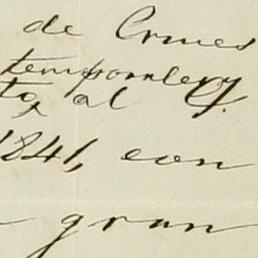 de Cruces
temporalery
to, al G.
1841, con
gran